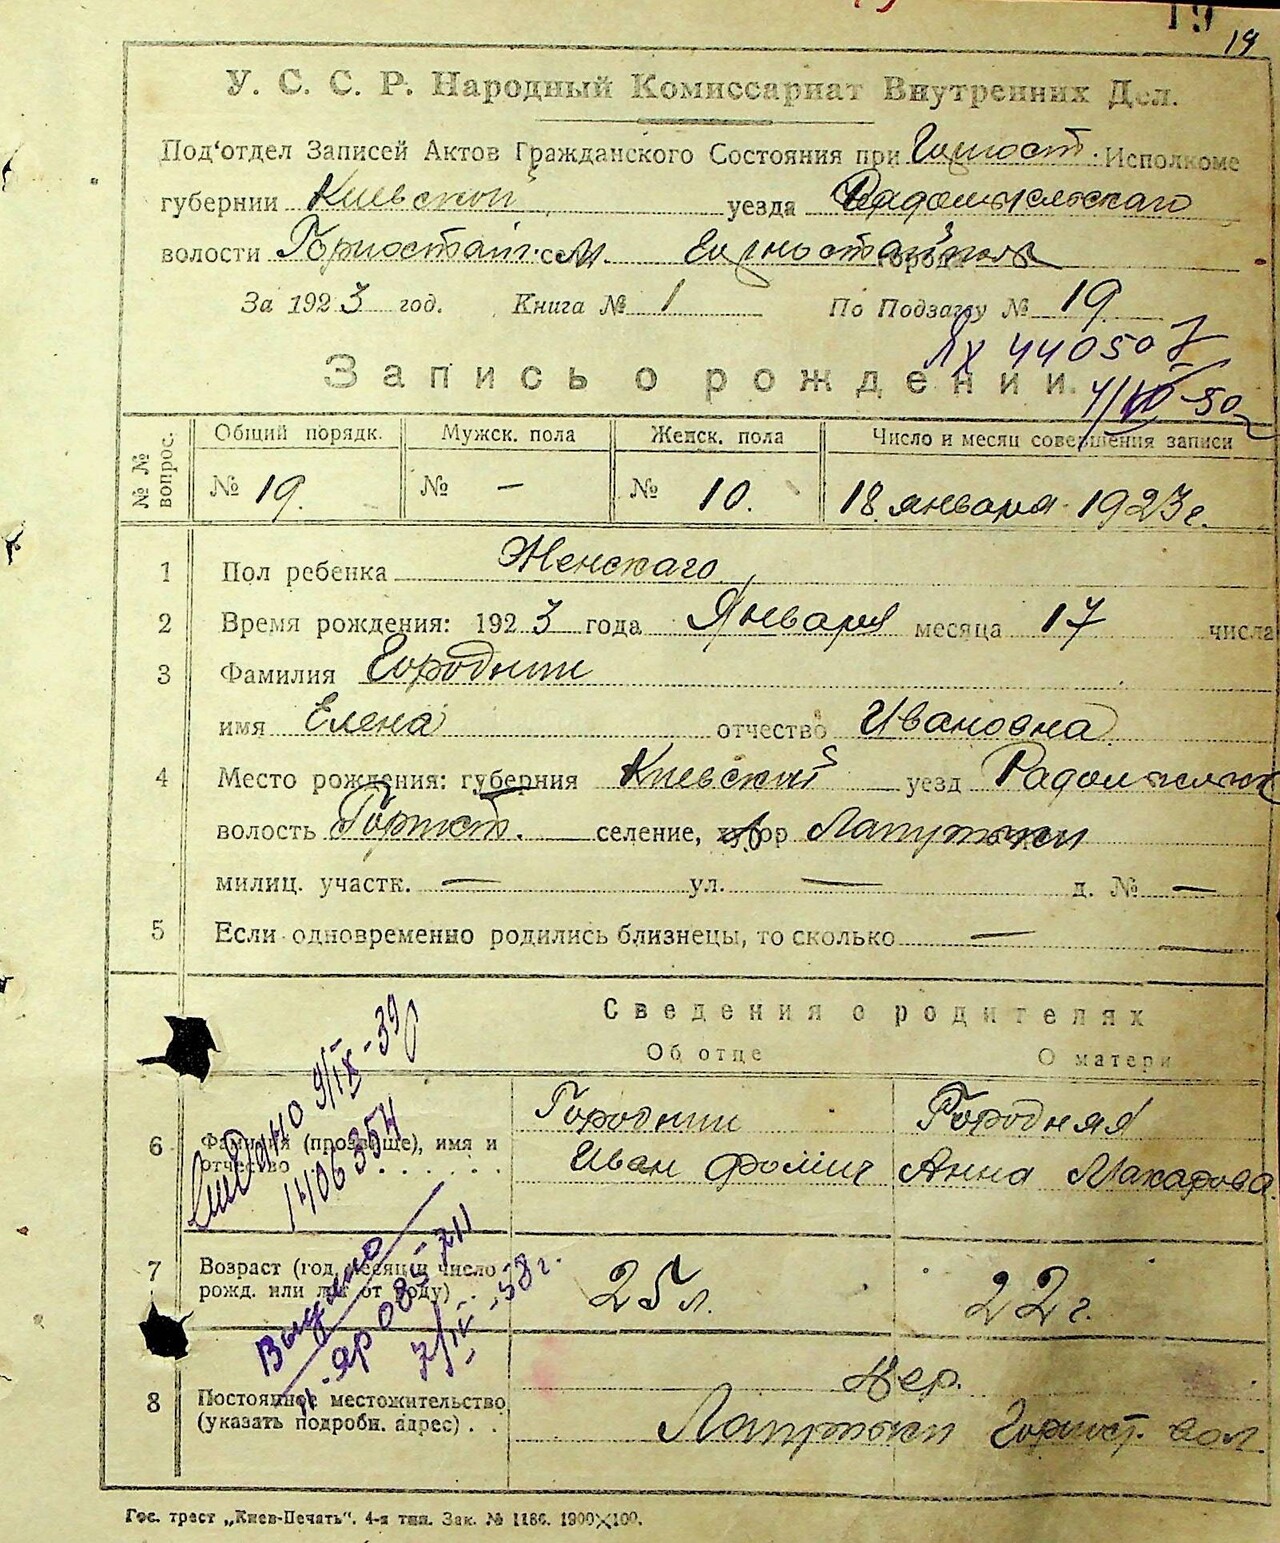 19
19
У. С. С. Р. Народный Комиссариат Внутренних Дел.
Под'отдел Записей Актов Гражданского Состояния при Горност. Исполкоме
губернии Киевской уезда Радомысльскаго
волости Горностайп. сел. Горностайполь
За 1923 год. Книга № 1 По Подзагу № 19.
ЯХ 440507
Запись о рождении.
4/ -50
№№ вопрос.
Общий порядк. Мужск. пола Женск. пола Число и месяц совершения записи
№ 19. № — № 10. 18 января 1923 г.
1 Пол ребенка Женскаго
2 Время рождения: 1923 года Января месяца 17 числа
3 Фамилия Городний
имя Елена отчество Ивановна
4 Место рождения: губерния Киевской уезд Радомысльск
волость Горност. селение, хутор Лапутьки
милиц. участк. — ул. — д. № —
5 Если одновременно родились близнецы, то сколько —
Сведения о родителях
Об отце О матери
6 Фамилия (прозвище), имя и отчество
Городний Городняя
Иван Фомич Анна Макарова
Дано 9/IX-39
1406354
7 Возраст (год, месяц и число рожд. или лет от роду)
25 л. 22 г.
Выдано
ЯР 085711
7/IV-58 г.
8 Постоянное местожительство (указать подробн. адрес)
дер.
Лапутьки Горност. вол.
Гос. трест „Киев-Печать". 4-я тип. Зак. № 1186. 1900×100.